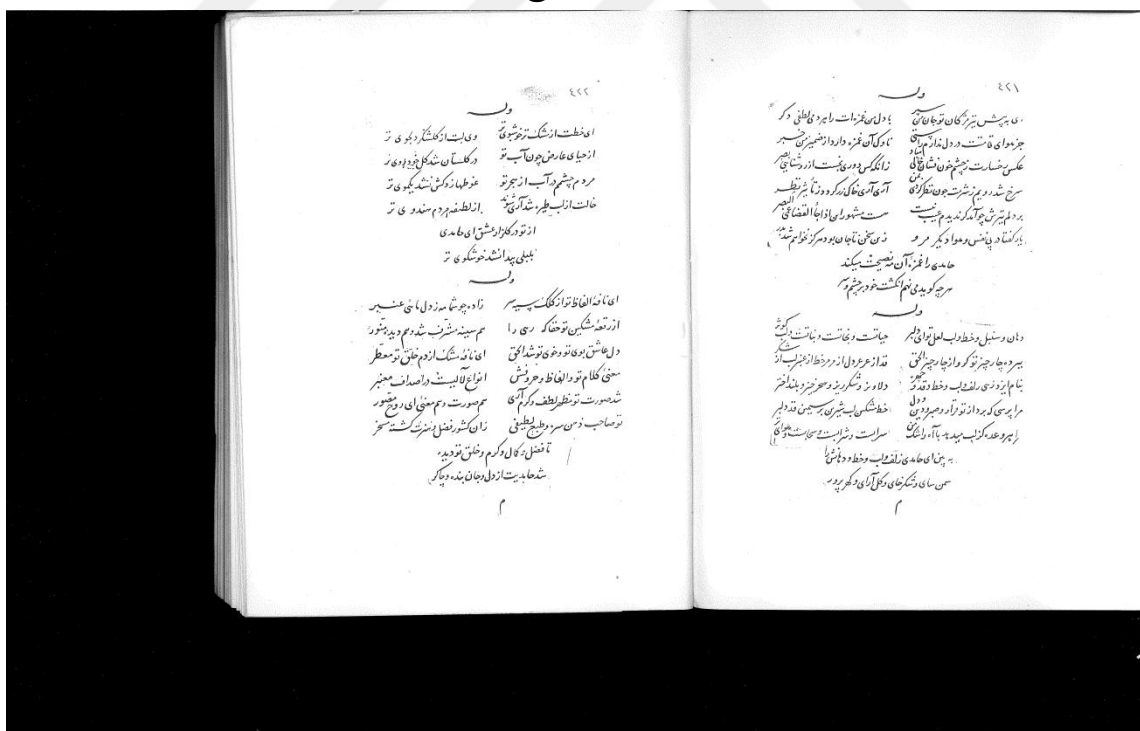 ٤٢١
وله
ای به پیش تیر مژگان تو جان من سپر با دل من غمزه‌ات را هر دمی لطفی دگر
جز هوای قامتت در دل ندارم راستی ناوک آن غمزه دارد از ضمیر من خبر
عکس رخسارت ز چشم خون فشان خالی زانکه کس دوری نجست از روشنایی بصر
سرخ شد رویم ز شرمت چون نظر کردی آری آری خاک زر گردد ز تأثیر نظر
بر دلم تیرش چو آمد گر ندیدم عیب نیست هست مشهور ای اذا جاء القضا عمی البصر
یار گفتا در پی نفس و هوا دیگر مرو زین سخن تا جان بود هرگز نخواهم شد بدر
حامدی را غمزه آن مه نصیحت میکند
هر چه گوید می نهم انگشت خود بر چشم و سر
وله
دهان و سنبل و خط و لب لعل تو ای دلبر حیاتت و نجاتت و نباتت و لب کوثر
ببرده چار چیز تو گرو از چار چیز الحق قد از عرعر دل از مرمر خط از عنبر لب از شکر
بنام ایزد زهی زلف و لب و خط و قد دلاویز و شکرریز و سحرخیز و بلند اختر
مرا پرسی که برد از تو قرار و صبر و دین و دل خط مشکین لب شیرین بر سیمین قد دلبر
سرابست و شرابست و سحابست و هوای
به بین ای حامدی زلف و لب و خط و دهانش را
سمن سای و شکرخای و گل آرای و گهر پرور
م
٤٢٢
وله
ای خطت از مشک تر خوشبوی تر وی لبت از گلشکر دلجوی تر
از حیای عارض چون آب تو در گلستان شد گل خودروی تر
مردم چشمم در آب از هجر تو غوطها زد کش نشد یکموی تر
خالت از لب طیره شد آری شوند از لطیفه مردم هندوی تر
از تو در گلزار عشق ای حامدی
بلبلی پیدا نشد خوشگوی تر
وله
ای نافه الفاظ تو از کلک سیه سر زاده چو شمامه ز دل مانی عنبر
از رقعه مشکین تو حقا که رهی را هم سینه مشرف شد و هم دیده منور
دل عاشق بوی تو و خوی تو شد الحق ای نافه مشک از دم خلق تو معطر
معنی کلام تو و الفاظ و حروفش انواع لآلیست در اصداف معنبر
شد صورت تو مظهر لطف و کرم آری هم صورت و هم معنی ای روح مصور
تو صاحب ذهن سره و طبع لطیفی زان کشور فضل و هنرت گشته مسخر
تا فضل و کمال و کرم و خلق تو دیده
شد حامدیت از دل و جان بنده و چاکر
م